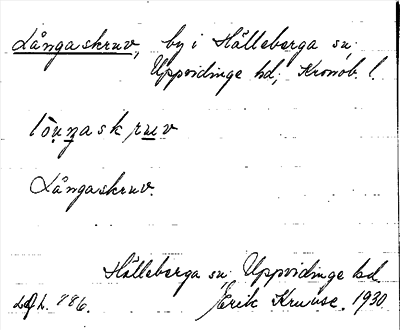 Långaskruv, by i Hälleberga sn,
Uppvidinge hd, Kronob. l.
lo̤ŋaskruv
Långaskruv.
Hälleberga sn, Uppvidinge hd.
886. Erik Kruuse. 1930